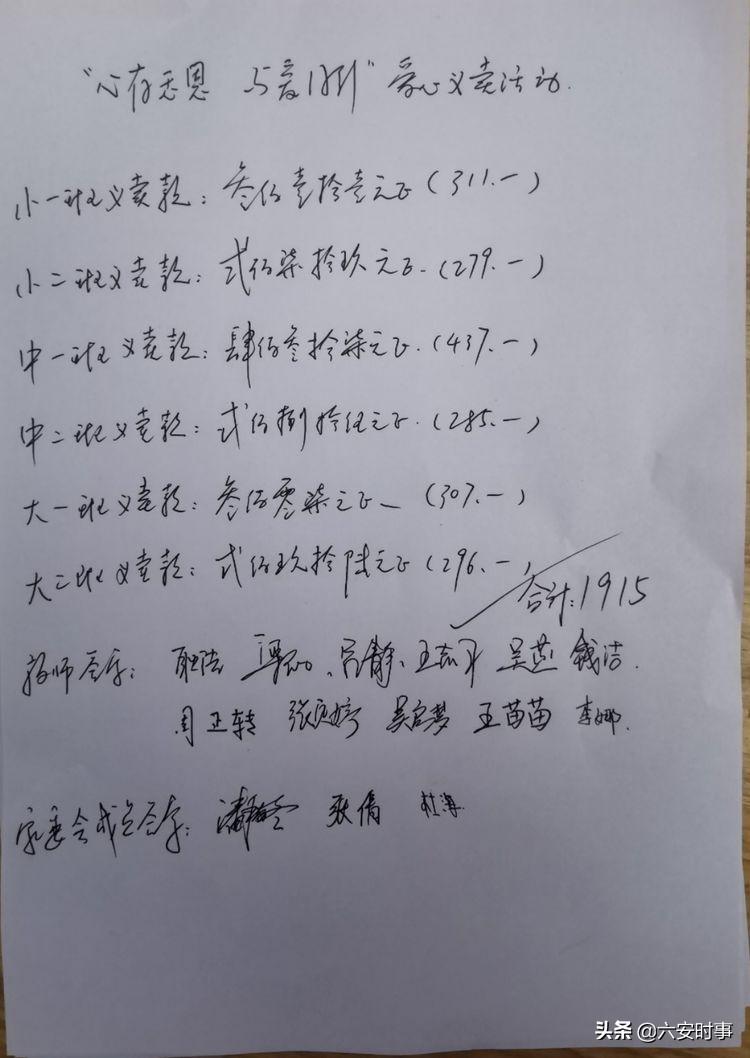 “心存感恩 与爱同行”爱心义卖活动.
小一班义卖款：叁佰壹拾壹元正（311.一）
小二班义卖款：贰佰柒拾玖元正.（279.一）
中一班义卖款：肆佰叁拾柒元正.（437.一）
中二班义卖款：贰佰捌拾伍元正.（285.一）
大一班义卖款：叁佰零柒元正（307.一）
大二班义卖款：贰佰玖拾陆元正（296.一）
合计：1915
教师签字： 吴燕 钱洁.
周正转 张 吴 梦 王苗苗 李娜.
家委会成员签字： 耿倩
头条 @六安时事